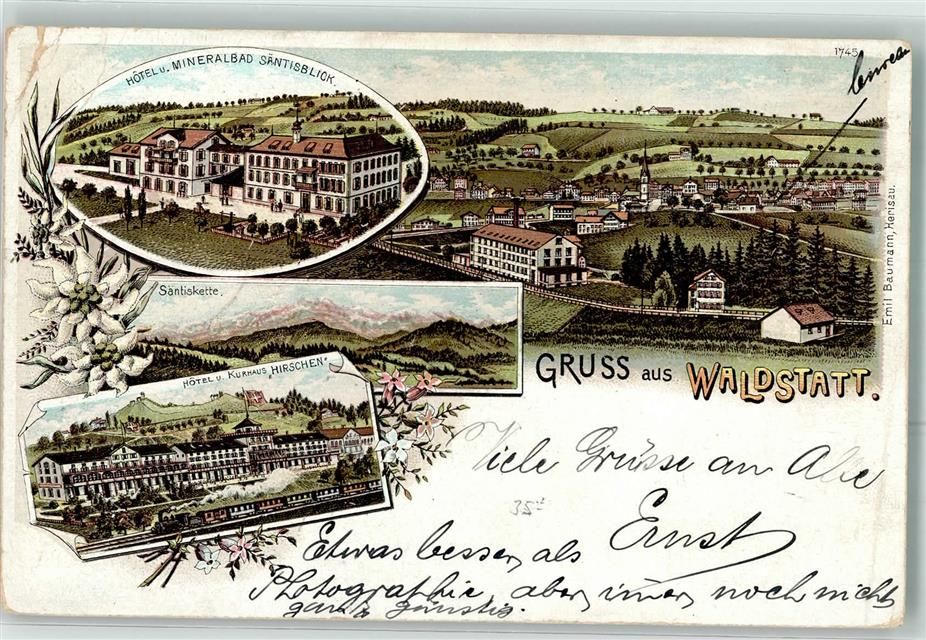 1745
HÔTEL U. MINERALBAD SÄNTISBLICK
Säntiskette.
HÔTEL U. KURHAUS "HIRSCHEN"
Emil Baumann, Herisau.
GRUSS aus WALDSTATT.
Viele Grüsse an Alle
35
Ernst
Etwas besser, als
Photographie, aber, imer, noch nicht
ganz günstig.